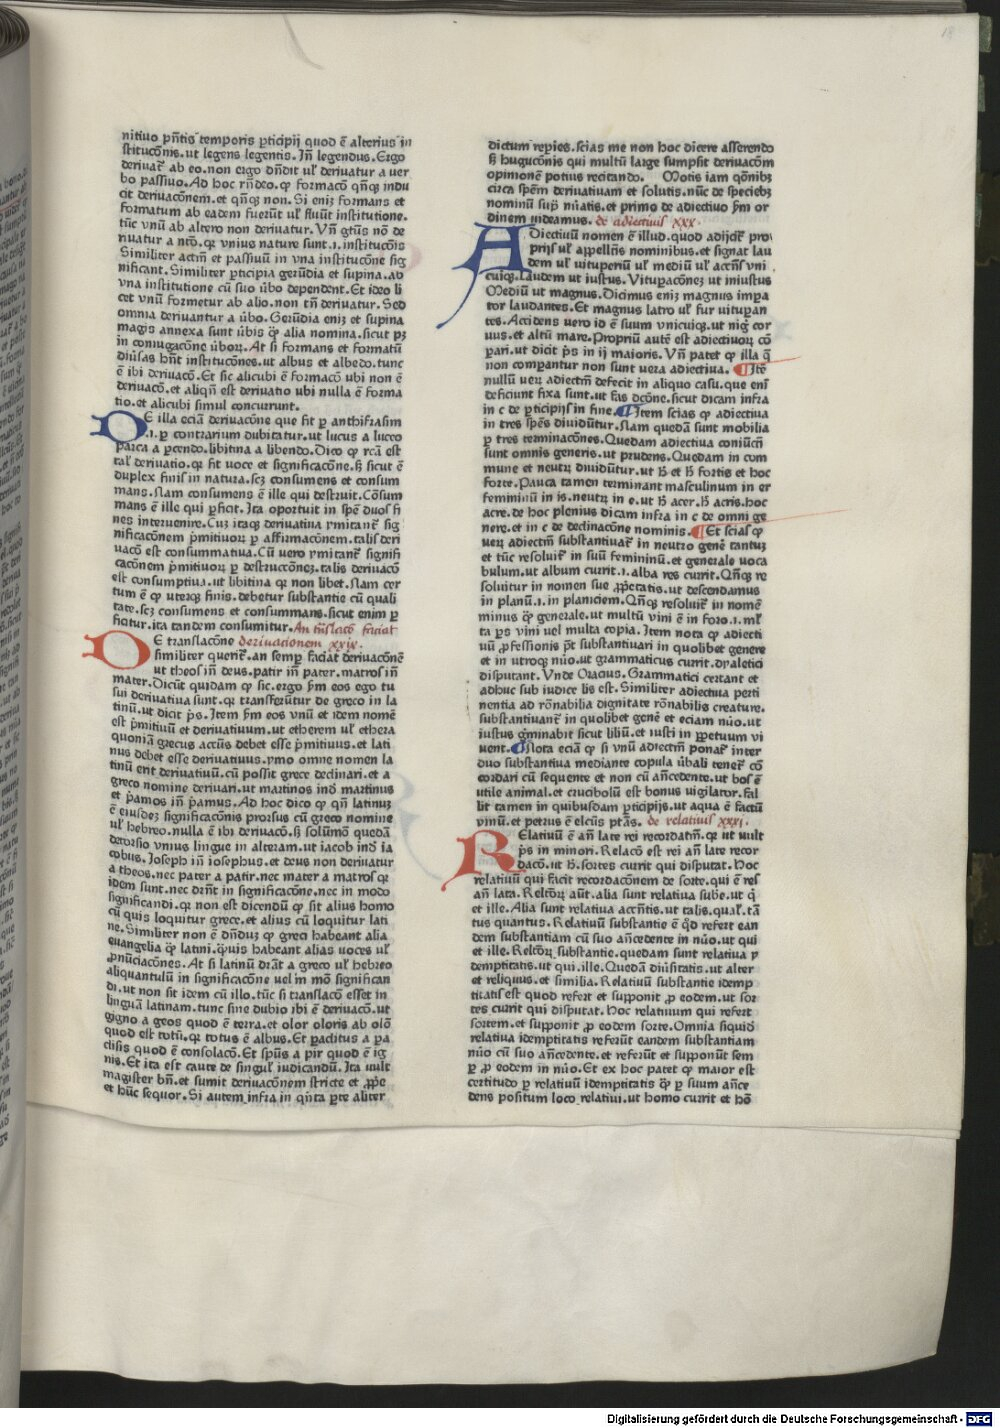 nitiuo pñtis temporis ꝑticipij quod ē alterius in
stitucōnis.ut legens legentis.Iñ legendus.Ergo
deriuat᷒ ab eo.non ergo dñdit ul᷒ deriuatur a uer
bo passiuo.Ad hoc rñdeo.ꝙ formacō qñqꝫ indu
cit deriuacōnem.et qñqꝫ non.Si eniꝫ formans et
formatum ab eadem fuerūt ul᷒ fluūt institutione.
tūc vnū ab altero non deriuatur.Vñ gtūs nō de
riuatur a ntō.qꝛ vnius nature sunt.ı.institucōis
Similiter actm̄ et passiuū in vna institucōne sig
nificant.Similiter ꝑticipia gerūdia et supina.ab
vna institutione cū suo ủbo dependent.Et ideo li
cet vnū formetur ab alio.non tñ deriuatur.Sed
omnia deriuantur a ủbo.Gerūdia eniꝫ et supina
magis annexa sunt ủbis ꝙ alia nomina.sicut pꝫ
in coniugacōne ủboꝝ.At si formans et formatū
diủsas hñt institucōnes.ut albus et albedo.tunc
ē ibi deriuacō.Et sic alicubi ē formacō ubi non ē
deriuacō.et aliqñ est deriuatio ubi nulla ē forma
tio.et alicubi simul concurrunt.
DE illa eciā deriuacōne que fit ꝑ anthifrasim
.ı.ꝑ contrarium dubitatur.ut lucus a luceo
parca a ꝑcendo.libitina a libendo.Dico ꝙ rcā est
tal᷒ deriuatio.qꝛ fit voce et significacōne.ẞ sicut ē
duplex finis in natura.scꝫ consumens et consum
mans.Nam consumens ē ille qui destruit.Cōsum
mans ē ille qui ꝑficit.Ita oportuit in spē duos fi
nes interuenire.Cuꝫ itaqꝫ deriuatiua ꝛmitant᷒ sig
nificacōnem p̄mitiuoꝝ ꝑ affirmacōnem.talis deri
uacō est consummatiua.Cū uero ꝛmitant᷒ signifi
cacōnem p̄mitiuoꝝ ꝑ destruccōneꝫ.talis deriuacō
est consumptiua.ut libitina qꝛ non libet.Nam cer
tum ē ꝙ uterqꝫ finis.debetur substantie cū quali
tate.scꝫ consumens et consummans.sicut enim ꝑ
ficitur.ita tandem consumitur.An trāslacō faciat
DE translacōne deriuacionem xxix.
similiter querit᷒.an semꝑ faciat deriuacōnē
ut theos iñ deus.patir iñ pater.matros iñ
mater.Dicūt quidam ꝙ sic.ergo ẜm eos ego tu
sui deriuatiua sunt.qꝛ transferūtur de greco in la
tinū.ut dicit p̄s.Item ẜm eos vnū et idem nomē
est p̄mitiuū et deriuatiuum.ut etherem ul᷒ ethera
quoniā grecus accūs debet esse p̄mitiuus.et lati
nus debet esse deriuatiuus.ymo omne nomen la
tinū erit deriuatiuū.cū possit grece declinari.et a
greco nomine deriuari.ut martinos ind̄ martinus
et p̄amos iñ p̄amus.Ad hoc dico ꝙ qñ latinuꝫ
ē eiusdeꝫ significacōnis prorsus cū greco nomine
ul᷒ hebreo.nulla ē ibi deriuacō.ẞ solūmō quedā
detorsio vnius lingue in alteram.ut iacob ind̄ ia
cobus.Ioseph iñ iosephus.et deus non deriuatur
a theos.nec pater a patir.nec mater a matros qꝛ
idem sunt.nec drñt in significacōne.nec in modo
significandi.qꝛ non est dicendū ꝙ sit alius homo
cū quis loquitur grece.et alius cū loquitur lati
ne.Similiter non ē dñduꝫ ꝙ greci habeant alia
euangelia ꝙ latini.q̄uis habeant alias uoces ul᷒
ꝓnūciacōnes.At si latinū drāt a greco ul᷒ hebreo
aliquantulū in significacōne uel in mō significan
di.ut non sit idem cū illo.tūc si translacō esset in
linguā latinam.tunc sine dubio ibi ē deriuacō.ut
gigno a geos quod ē terra.et olor oloris ab olō
quod est totū.qꝛ totus ē albus.Et ꝑaclitus a ꝑa
clisis quod ē consolacō.Et spūs a pir quod ē ig
nis.Et ita est caute de singul᷒ iudicandū.Ita uult
magister bñ.et sumit deriuacōnem stricte et ꝓpe
et hūc sequor.Si autem infra in qñta ꝑte aliter
dictum reꝑies.scias me non hoc dicere asserendo
ẞ huguicōnis qui multū large sumpsit deriuacōm
opinionē potius recitando. Motis iam qōnibꝫ
circa spēm deriuatiuam et solutis.nūc de speciebꝫ
nominū sup̄ nūatis.et primo de adiectiuo ẜm or
dinem uideamus. de adiectiuis xxx.
ADiectiuū nomen ē illud.quod adijcit᷒ pro
prijs ul᷒ appellīs nominibus.et signat lau
dem ul᷒ uituperiū ul᷒ mediū ul᷒ accñs vni
cuiqꝫ.Laudem ut iustus.Vituꝑacōneꝫ ut iniustus
Mediū ut magnus.Dicimus eniꝫ magnus imꝑa
tor laudantes.Et magnus latro ul᷒ fur uituꝑan
tes.Accidens uero id ē suum vnicuiqꝫ.ut nig᷒ cor
uus.et altū mare.Propriū autē est adiectiuoꝝ cō
ꝑari.ut dicit p̄s in ij maioris.Vñ patet ꝙ illa q̄
non comꝑantur non sunt uera adiectiua. ¶Itē
nullū ueꝝ adiectm̄ defecit in aliquo casu.que eni᷒
deficiunt fixa sunt.ut fas dcōne.sicut dicam infra
in c de ꝑticipijs in fine.¶Item scias ꝙ adiectiua
in tres spēs diuidūtur.Nam quedā sunt mobilia
ꝑ tres terminacōnes.Quedam adiectiua coniūctī
sunt omnis generis.ut prudens.Quedam in com
mune et neutꝝ diuidūtur.ut ħ et ħ fortis et hoc
forte.Pauca tamen terminant masculinum in er
femininū in is.neutꝝ in e.ut ħ acer.ħ acris.hoc
acre.de hoc plenius dicam infra in c de omni ge
nere.et in c de declinacōne nominis.¶Et scias ꝙ
ueꝝ adiectm̄ substantiuat᷒ in neutro genē tantuꝫ
et tūc resoluit᷒ in suū femininū.et generale uoca
bulum.ut album currit.ı.alba res currit.Qñqꝫ re
soluitur in nomen sue ꝓpetatis.ut descendamus
in planū.ı.in planiciem.Qñqꝫ resoluit᷒ in nomē
minus ꝙ generale.ut multū vini ē in foro.ı.ml᷒
ta ꝑs vini uel multa copia.Item nota ꝙ adiecti
uū ꝓfessionis pt̄ substantiuari in quolibet genere
et in utroqꝫ nūo.ut grammaticus currit.dyaletici
disputant.Vnde Oracius.Grammatici certant et
adhuc sub iudice lis est.Similiter adiectiua ꝑti
nentia ad rōnabilia dignitate rōnabilis creature.
substantiuant᷒ in quolibet genē et eciam nūo.ut
iustus gīminabit sicut liliū.et iusti in ꝑpetuum vi
uent.¶Nota eciā ꝙ si vnū adiectm̄ ponat᷒ inter
duo substantiua mediante copula ủbali tenet᷒ cō
cordari cū sequente et non cū añcedente.ut bos ē
utile animal.et crucibolū est bonus uigilator.fal
lit tamen in quibusdam ꝑticipijs.ut aqua ē factū
vinū.et petrus ē elcūs ptās. de relatiuis xxxı.
RElatiuū ē añ late rei recordatm̄.qꝛ ut uult
p̄s in minori.Relacō est rei añ late recor
dacō.ut ħ.sortes currit qui disputat.Hoc
relatiuū qui facit recordacōnem de sorte.qui ē res
añ lata.Relcōꝝ aūt.alia sunt relatiua sube.ut q᷒
et ille.Alia sunt relatiua accñtis.ut talis.qual᷒.tā
tus quantus.Relatiuū substantie ē qđ refert ean
dem substantiam cū suo añcedente in nūo.ut qui
et ille.Relcōꝝ substantie.quedam sunt relatiua ꝑ
demptitatis.ut qui.ille.Quedā diủsitatis.ut alter
et reliquus.et similia.Relatiuū substantie idemp
titatis est quod refert et supponit ꝓ eodem.ut sor
tes currit qui disputat.Hoc relatiuum qui refert
sortem.et supponit ꝓ eodem sorte.Omnia siquid᷒
relatiua idemptitatis referūt eandem substantiam
nūo cū suo añcedente.et referūt et supponūt sem
ꝑ ꝓ eodem in nūo.Et ex hoc patet ꝙ maior est
certitudo ꝑ relatiuū idemptitatis ꝙ ꝑ suum añce
dens positum loco relatiui.ut homo currit et hō
Digitalisierung gefördert durch die Deutsche Forschungsgemeinschaft - DFG